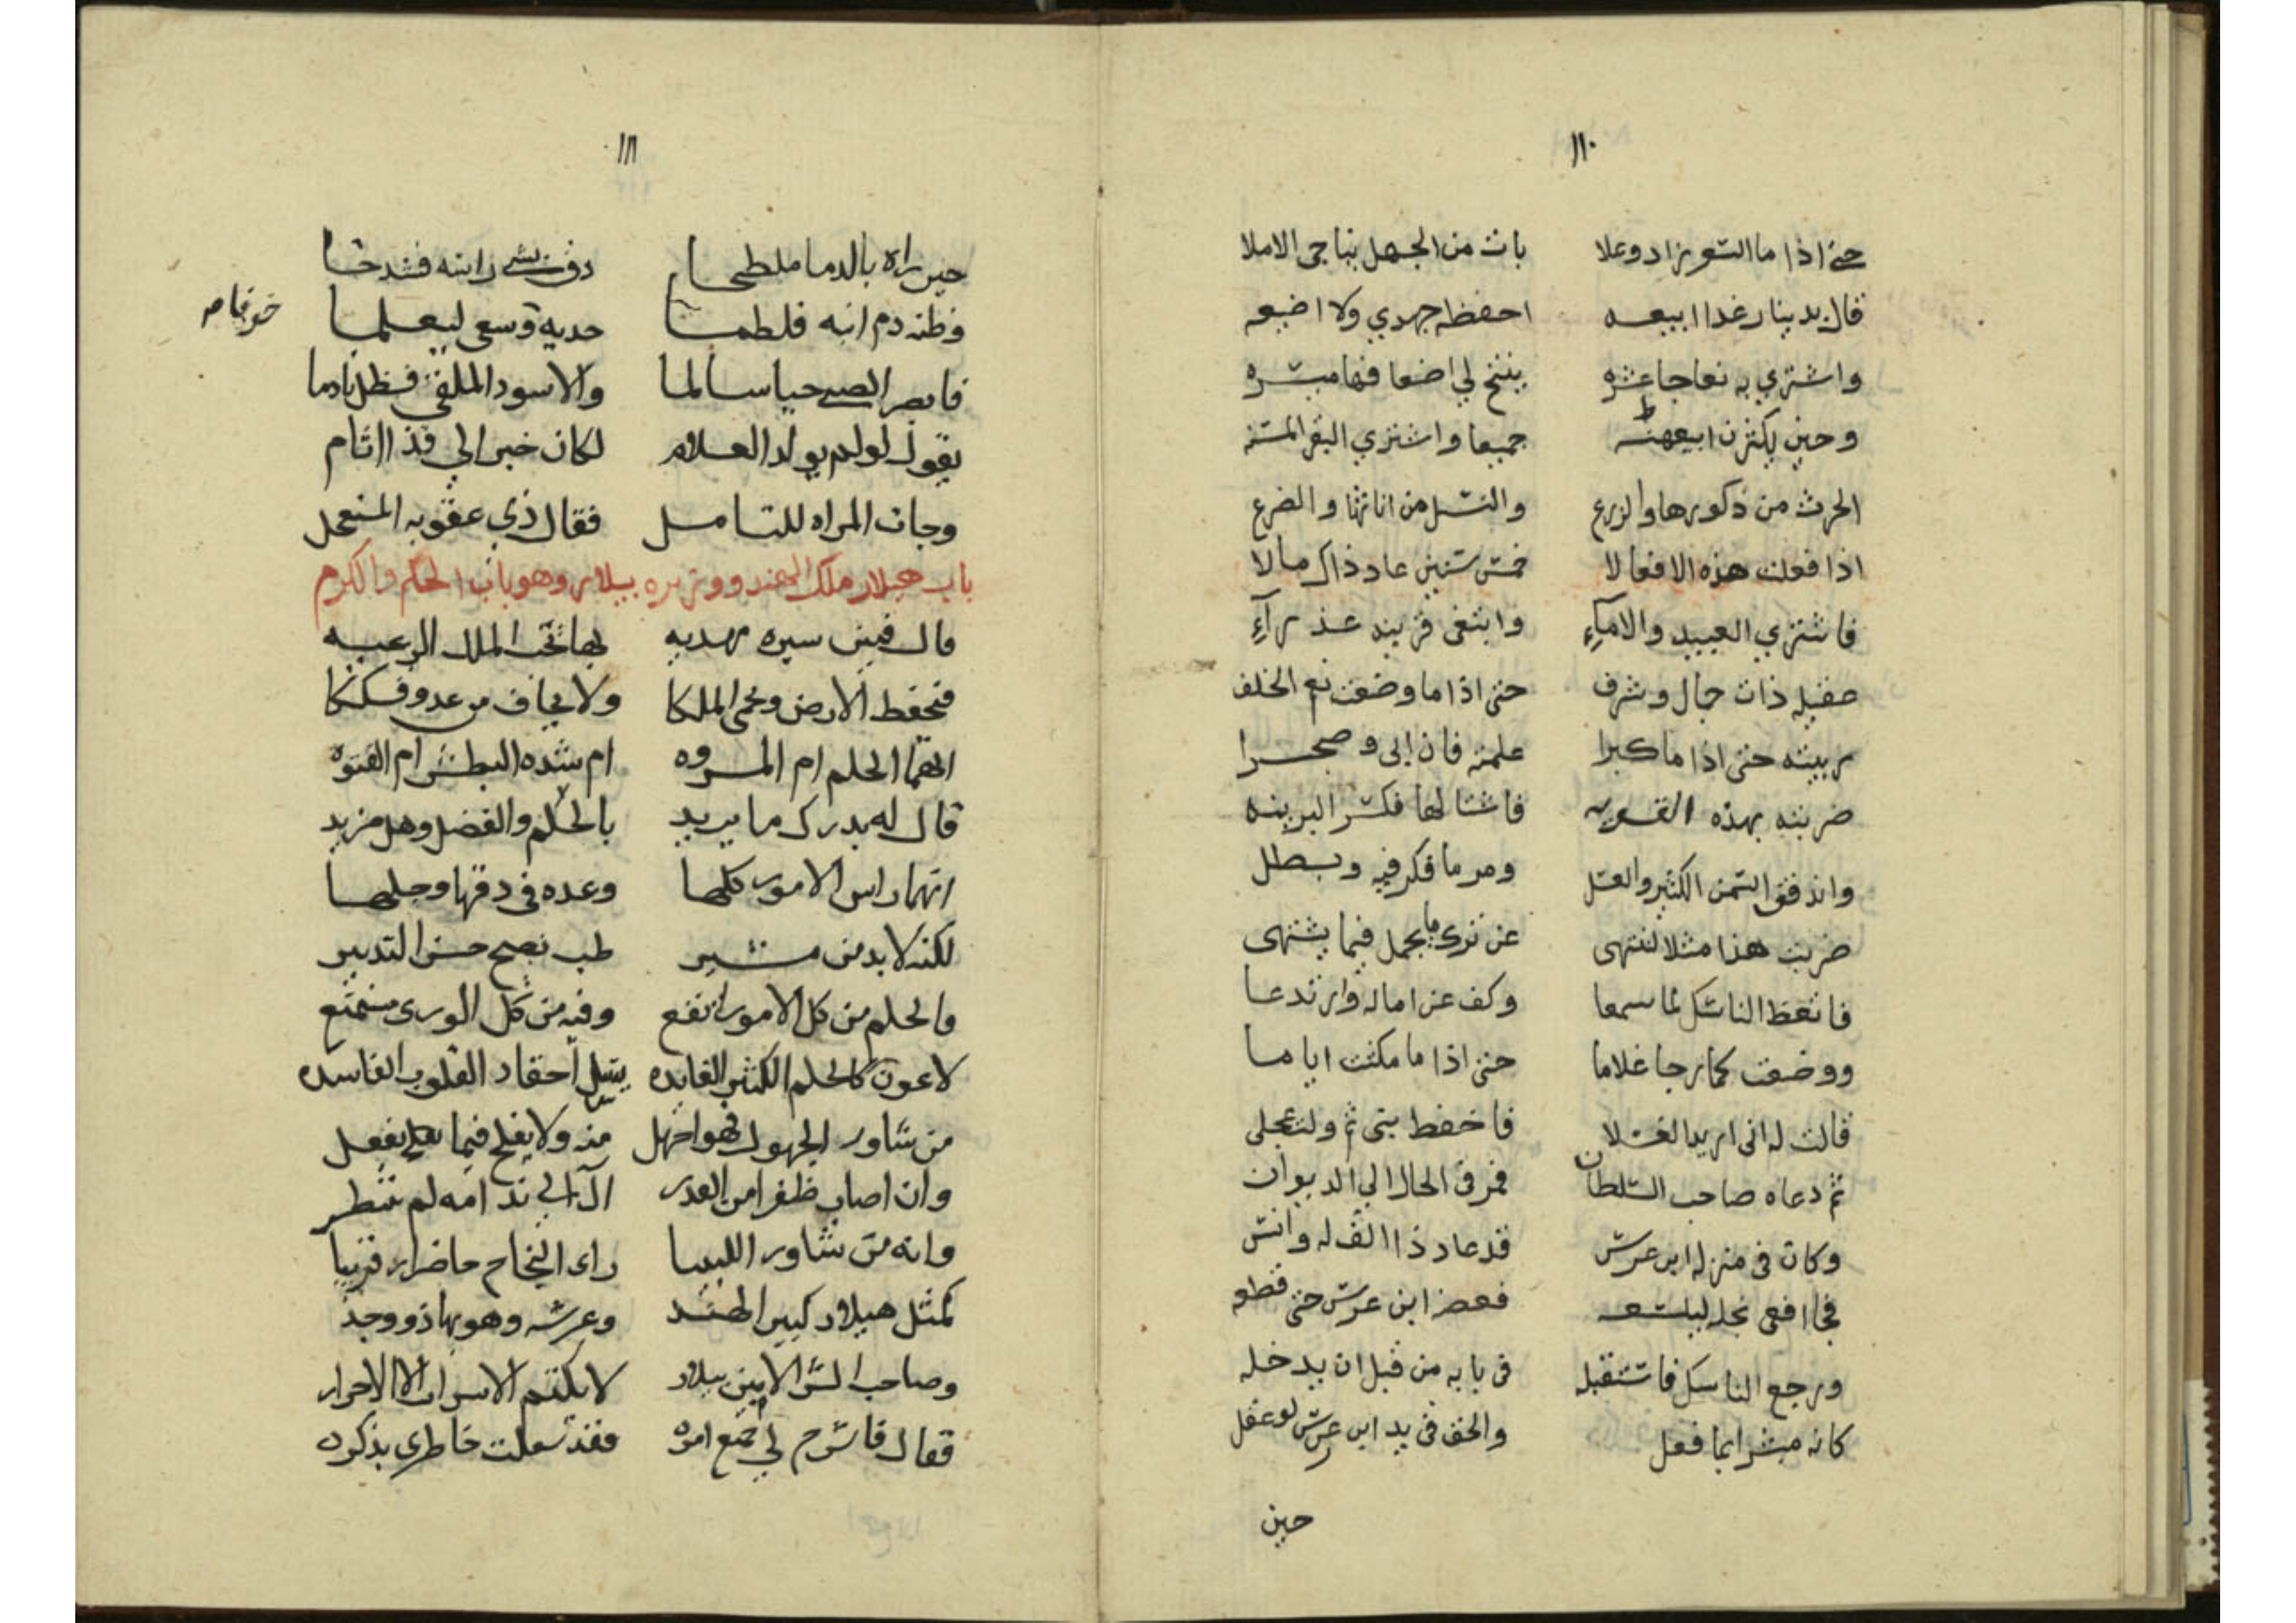 ١١٠
حتى اذا ما السعر زاد وعلا بات من الجهل يناجي الاملا
قال بدينار غدا ابيعه احفظه جهدي ولا اضيعه
واشتري به نعاجا عشره ينتج لي اضعافها مبشره
وحين يكثرن ابيعهنه جميعا واشتري البقر المسنه
الحرث من ذكورها والزرع والنسل من اناثها والضرع
اذا فعلت هذه الافعالا خمس سنين عاد ذاك مالا
فاشتري العبيد والامآءِ وابتغي قرينه عذرآءِ
عقيله ذات جمال وشرف حتى اذا ما وضعت نعم الخلف
ربيته حتى اذا ما كبرا علمته فان ابى وصجرا
ضربته بهذه القسويه فاشتالها فكسر البرنيه
واندفق السمن الكثير والعسل ومر ما فكر فيه وبطل
ضربت هذا مثلا لتنتهي عن ترك ما يجمل فيما يشتهى
فاتعظ الناسك لما سمعا وكف عن اماله وارتدعا
ووضعت كما رجا غلاما حتى اذا ما مكثت اياما
قالت له اني اريد الغسلا فاحفظ بني ثم ولت عجلى
ثم دعاه صاحب السلطان فمر في الحال الي الديوان
وكان في منزله ابن عرس قد عاد ذا الف له وانس
فجا افعى نجله ليلسعه فعض ابن عرس حتى قطعه
ورجع الناسك فاستقبله في بابه من قبل ان يدخله
كانه مبشرا بما فعل والحتف في يد ابن عرس لو عقل
حين
١١١
حين راه بالدما ملطخا دق راسه فشدخا
وظنه دم ابنه فلطما خديه وسعى ليعلما
فابصر الصبي حيا سالما والاسود الملقى فظل نادما
يقول لو لم يولد الغلام لكان خيرا لي من ذا اثام
وجات المراه للتامل فقال ذي عقوبه المستعجل
باب هيلار ملك الهند ووزيره بيلار وهو باب الحلم والكرم
قال فمن سيره مهديه بها تحت الملك الرعيه
فتحفظ الارض وتحمى الملكا ولا يخاف من عدو فتكا
ايهما الحلم ام المروه ام شده البطش ام الفتوه
قال له يدرك ما يريد بالحلم والفضل وهل مزيد
انهما راس الامور كلها وعده في دقها وجلها
لكنه لا بد من مشير طب نصيح حسن التدبير
والحلم من كل الامور انفع وفيه من كل الورى ممتع
لا عون كالحلم الكثير الفايده يسل احقاد القلوب الفاسده
من شاور الجهول فهو اجهل منه ولا يفلح فيما يفعل
وان اصاب ظفرا من القدر آل الي ندامه لم تنتظر
وانه من شاور اللبيبا راى النجاح حاضرا قريبا
كمثل هيلار كبير الهند وعرسه وهو بها ذو وجد
وصاحب السر الامين بيلار لا يكتم الاسرار الا الاحرار
فقال فاشرح لي جميع امره فقد شغلت خاطري بذكره